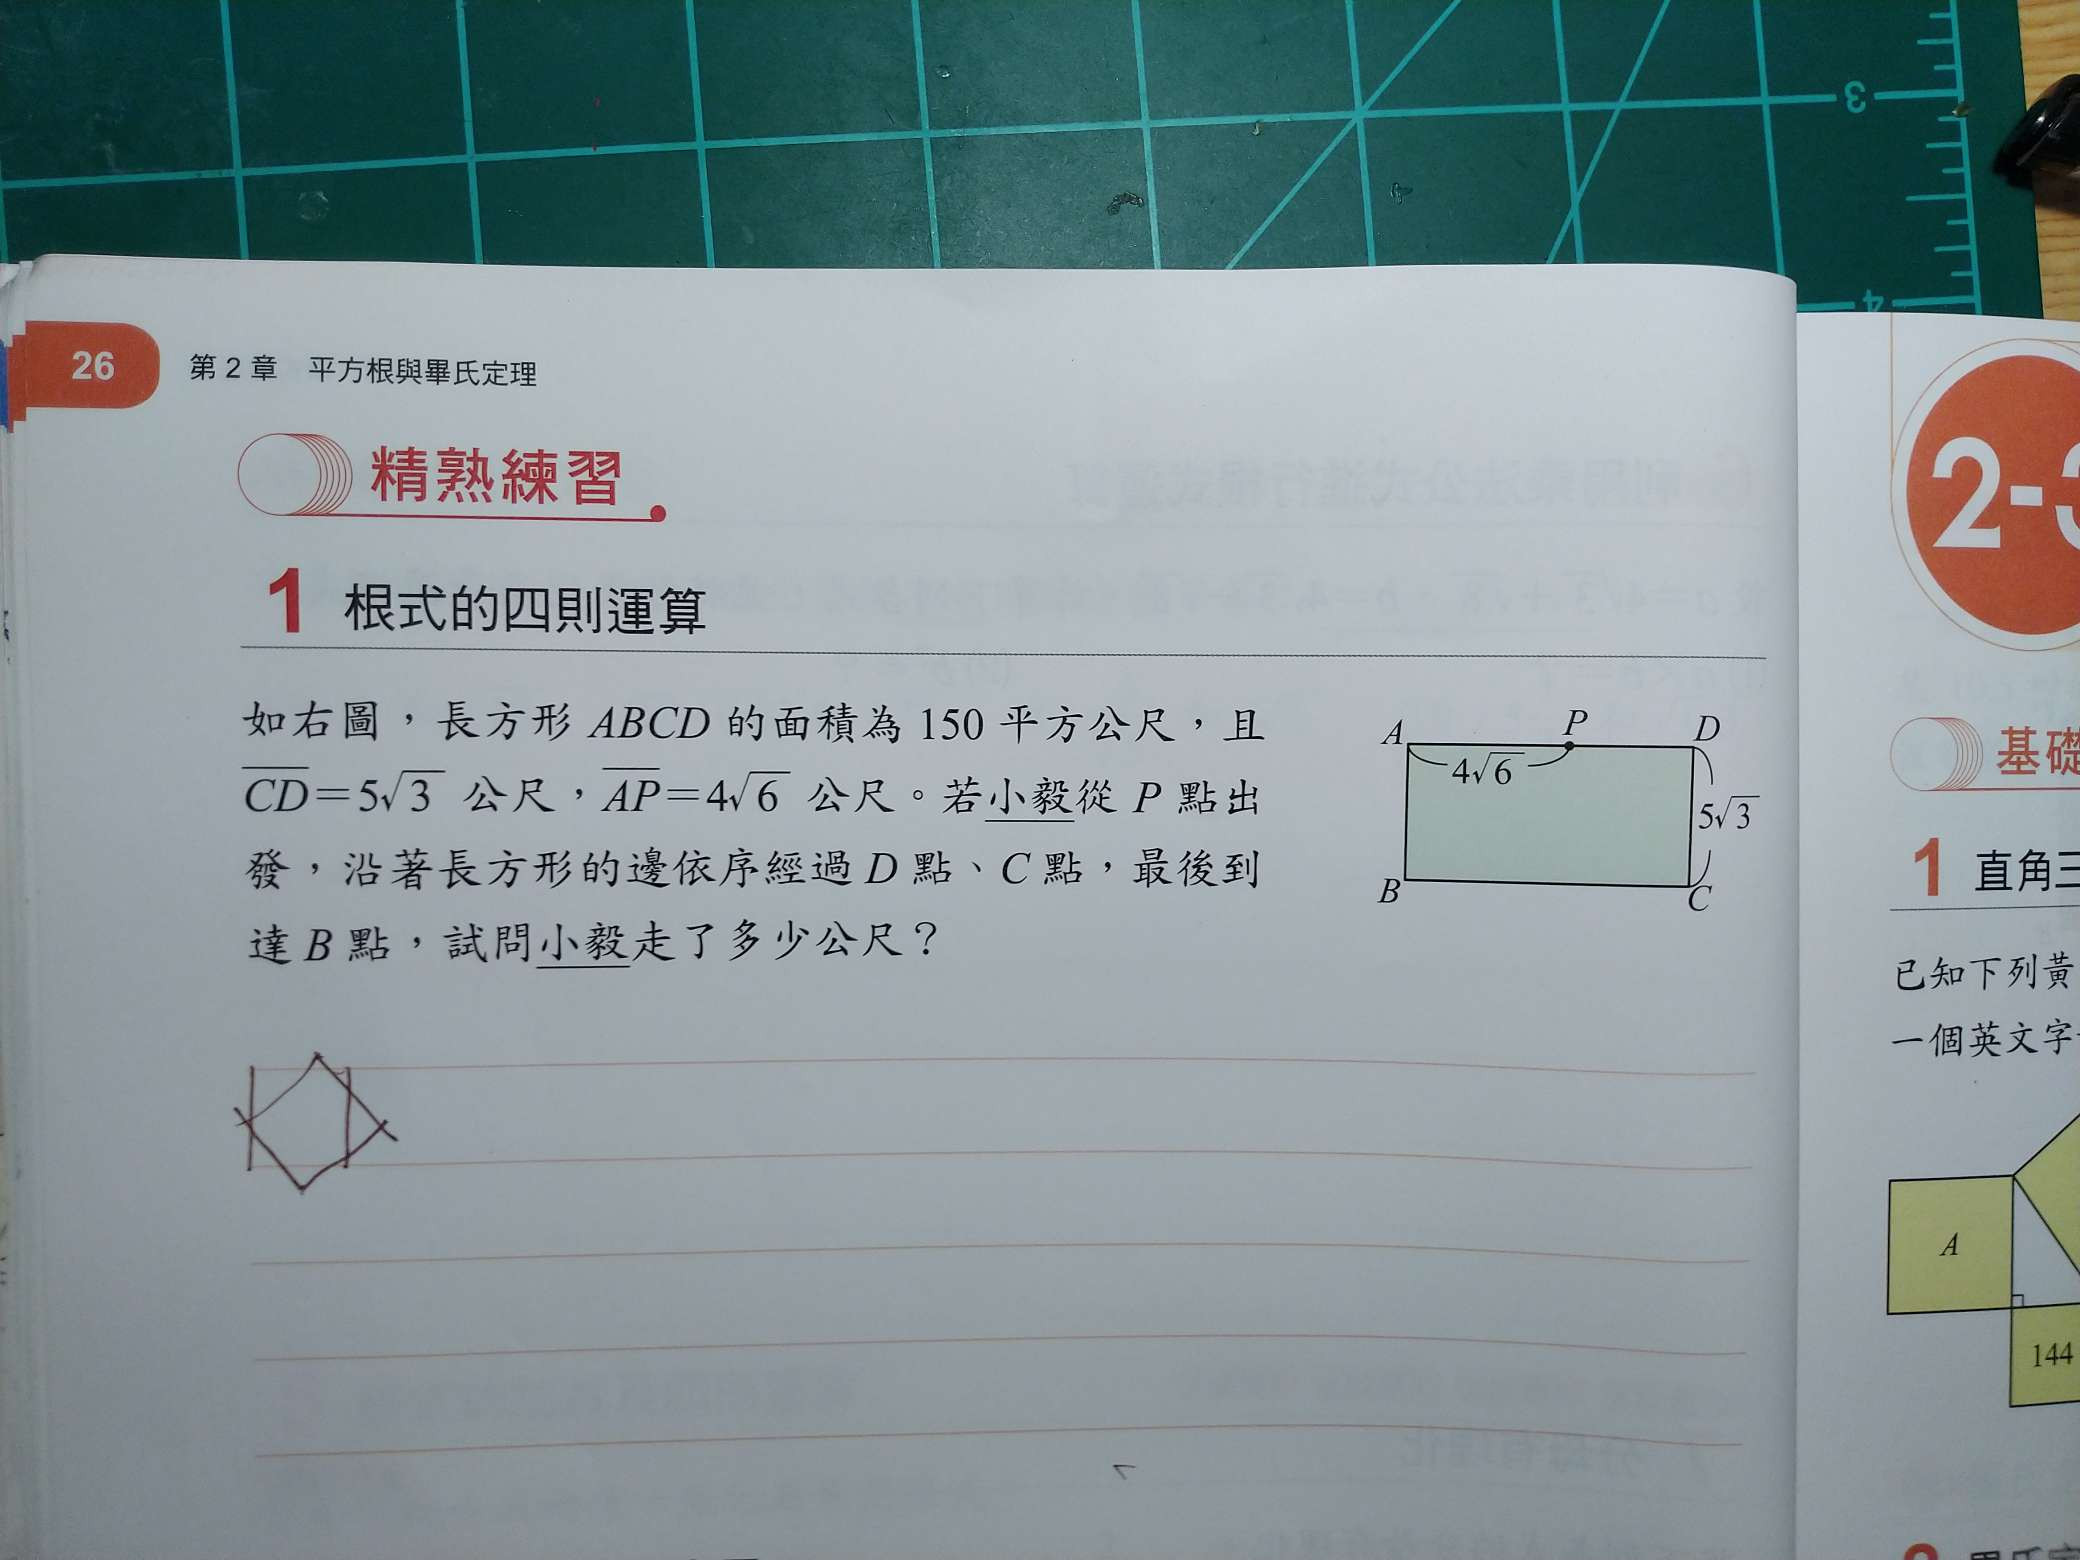 3
4
26
第 2 章 平方根與畢氏定理
精熟練習
1 根式的四則運算
如右圖，長方形 ABCD 的面積為 150 平方公尺，且
CD＝5√3 公尺，AP＝4√6 公尺。若小毅從 P 點出
發，沿著長方形的邊依序經過 D 點、C 點，最後到
達 B 點，試問小毅走了多少公尺？
A P D
4√6
5√3
B C
2-3
基礎
1 直角三
已知下列黃
一個英文字
A
144